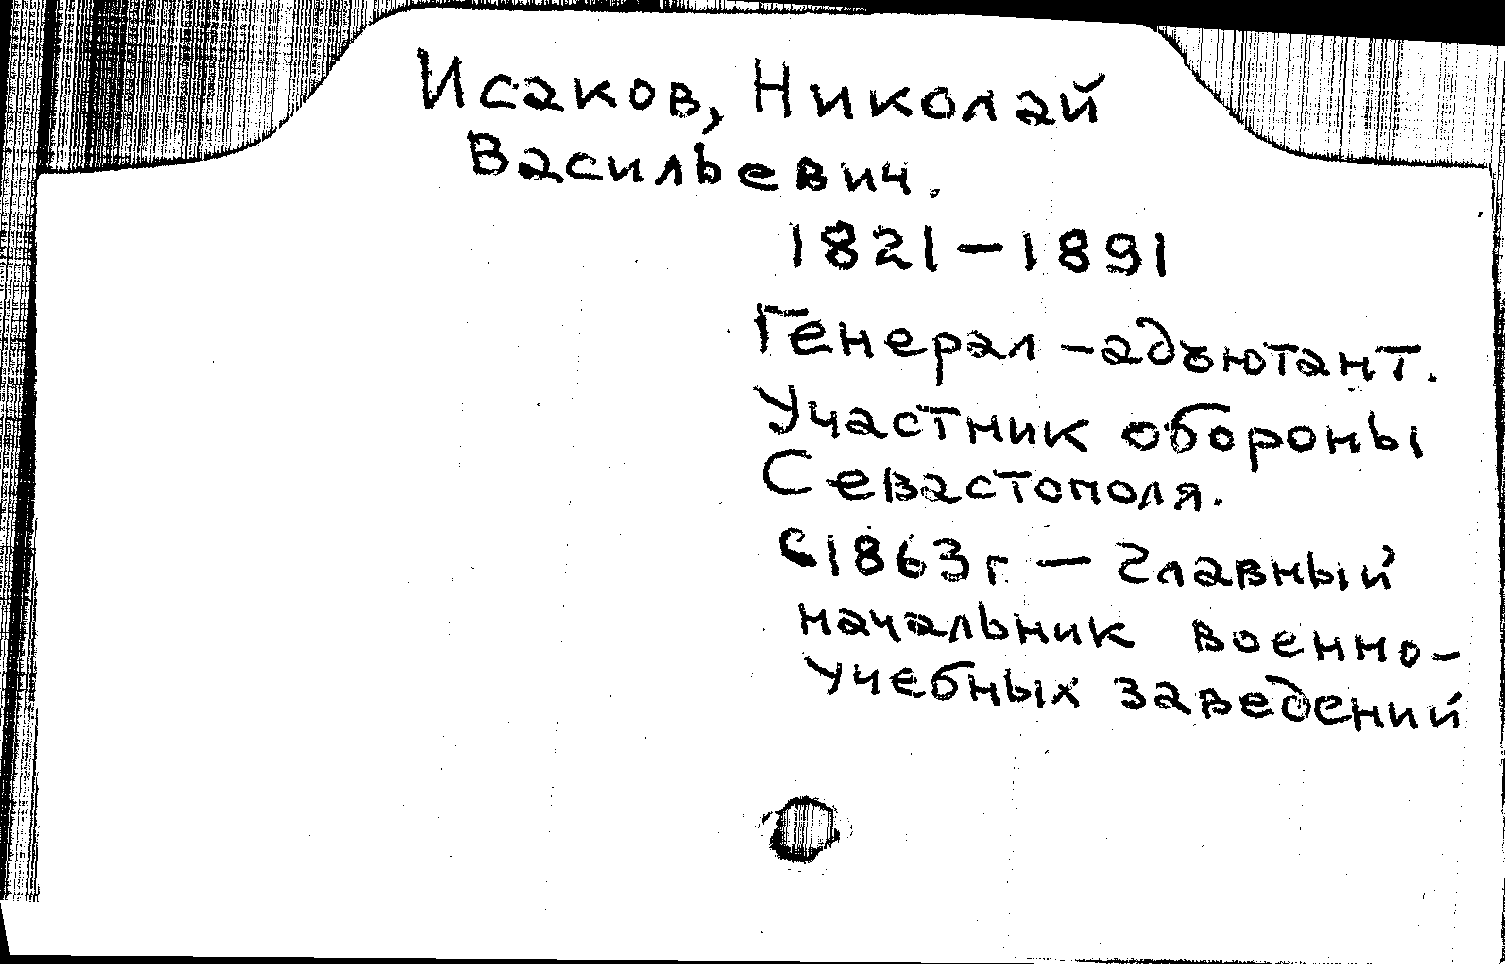 Исаков, Николай
Васильевич.
1821-1891
Генерал-адъютант.
Участник обороны
Севастополя.
С 1863 г - главный
начальник военно-
учебных заведений